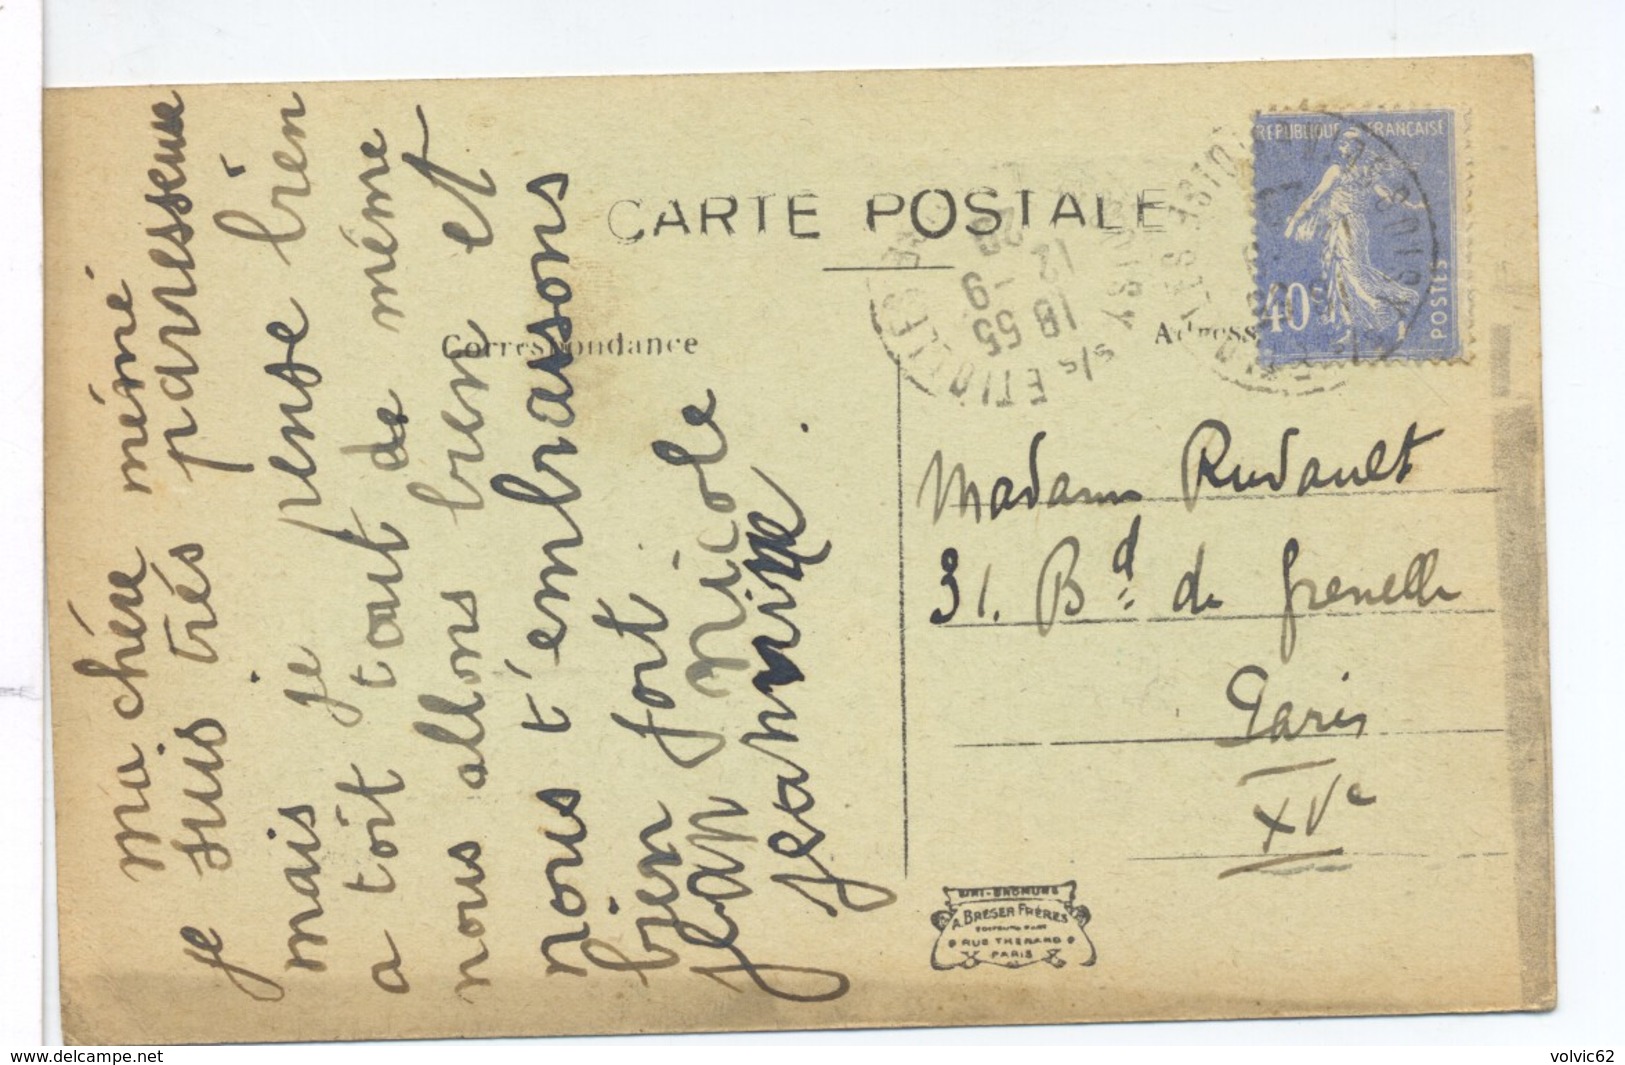 ma chére mémé
je suis trés paresseuse
mais je pense bien
a toit tout de même
nous allons bien et
nous t'embrassons
bien fort
jean Nicole
jeannine.
CARTE POSTALE
Correspondance
Adresse
REPUBLIQUE FRANÇAISE
40
POSTES
18 55
12 -9
ETIOLLES
s/s
Madame Rudault
31. Bd de Grenelle
Paris
XVe
A. BRESER FRÈRES
RUE THENARD
PARIS
www.delcampe.net
volvic62